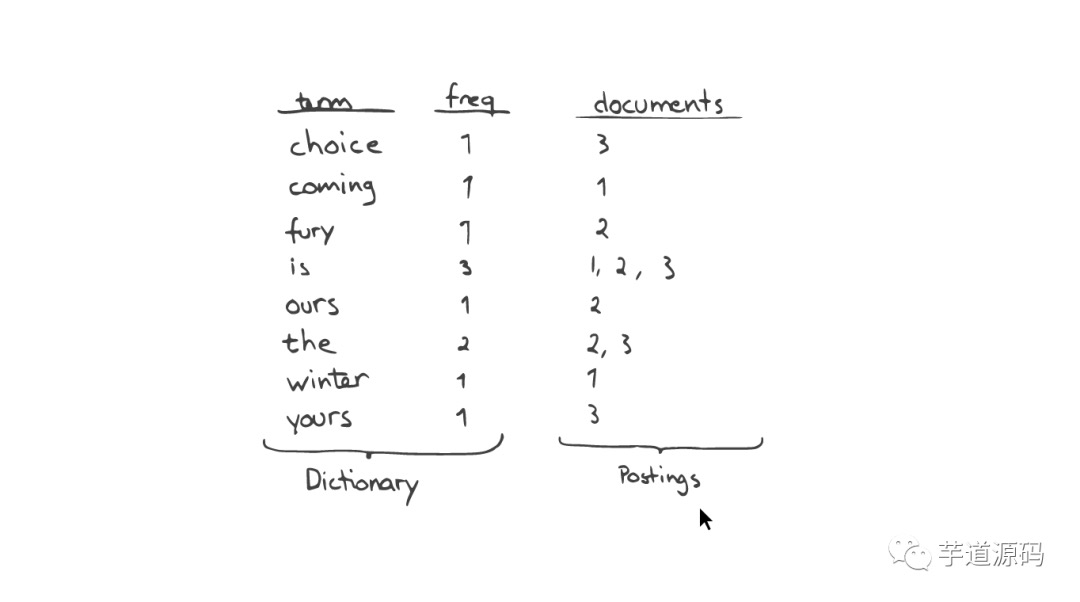 term freq documents
choice 1 3
coming 1 1
fury 1 2
is 3 1, 2, 3
ours 1 2
the 2 2, 3
winter 1 1
yours 1 3
Dictionary Postings
芋道源码